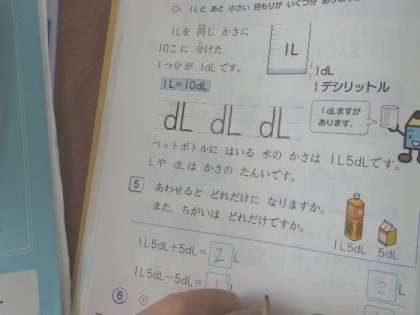 1Lと あと 小さい 目もりが いくつ分
1Lを 同じ かさに
10こに 分けた
1つ分が 1dLです。
1L
1dL
1デシリットル
1L=10dL
1dLますが
あります。
dL dL dL
ペットボトルに はいる 水の かさは 1L5dLです。
Lや dLは かさの たんいです。
5 あわせると どれだけに なりますか。
また、ちがいは どれだけですか。
1L5dL 5dL
1L5dL+5dL=2L
1L5dL-5dL=1L
2
6 ㋐